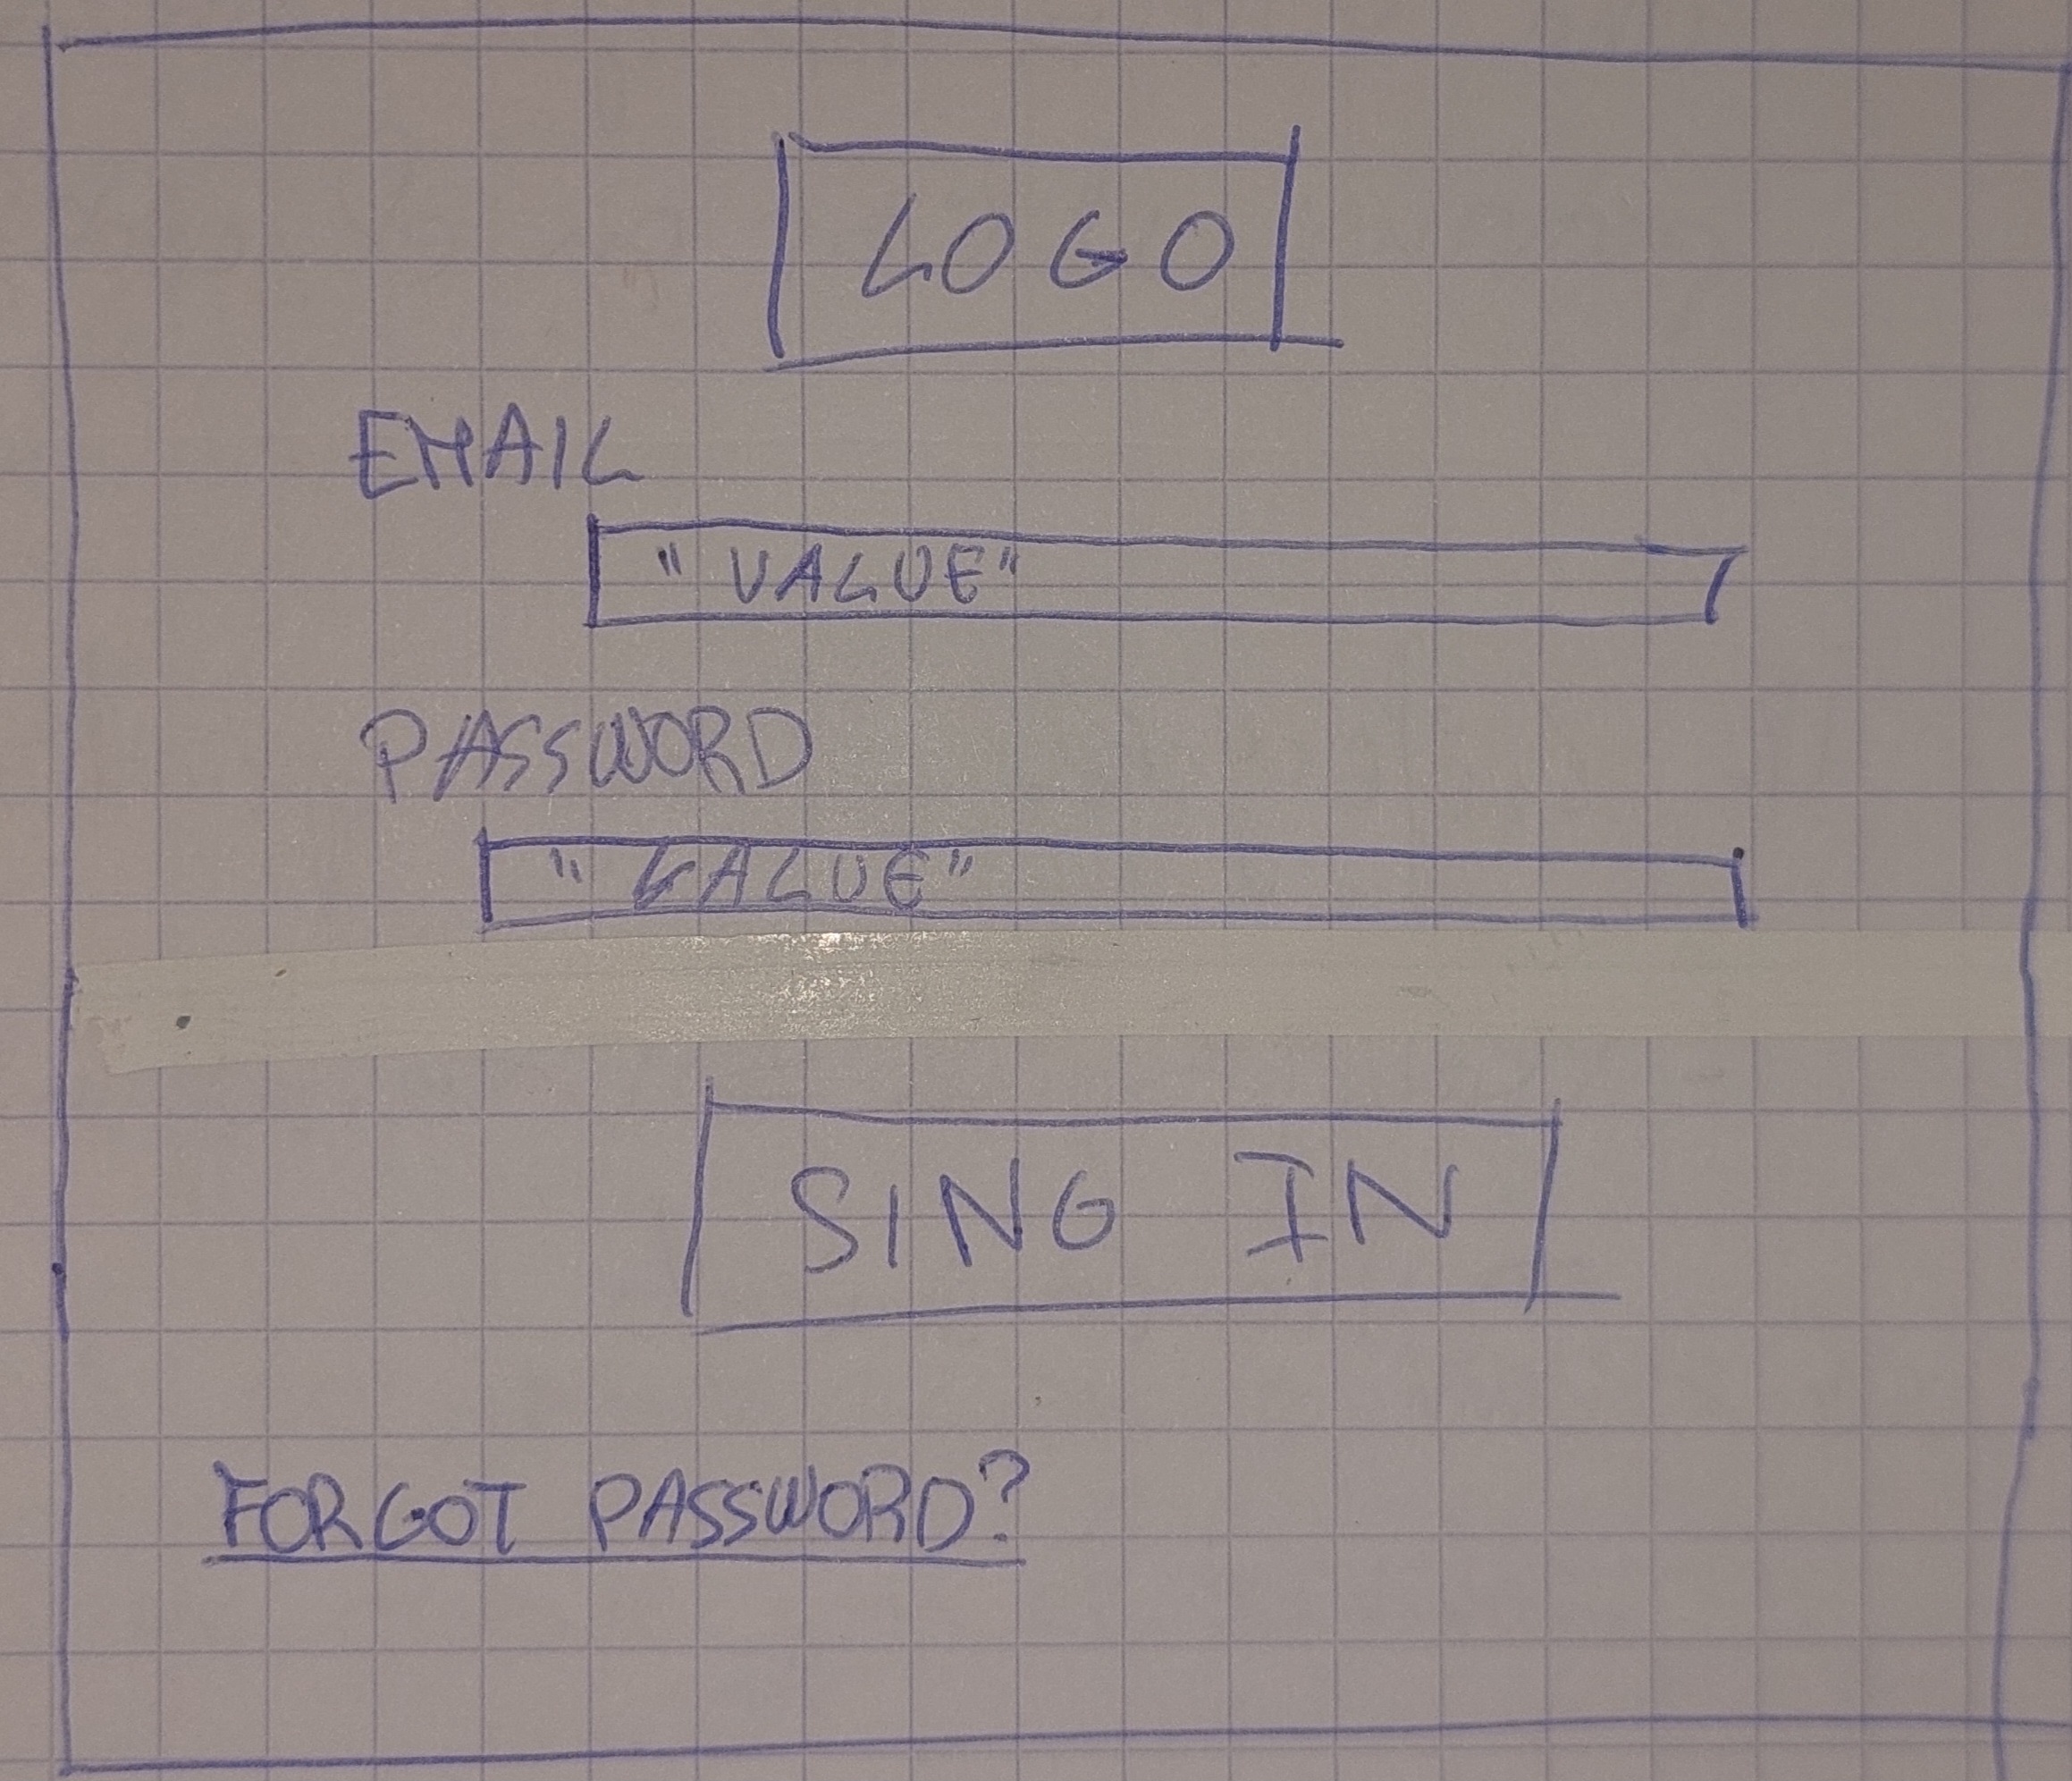 LOGO
EMAIL
"VALUE"
PASSWORD
"VALUE"
SING IN
FORGOT PASSWORD?